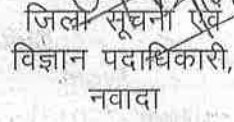 जिला सूचना एवं
विज्ञान पदाधिकारी,
नवादा